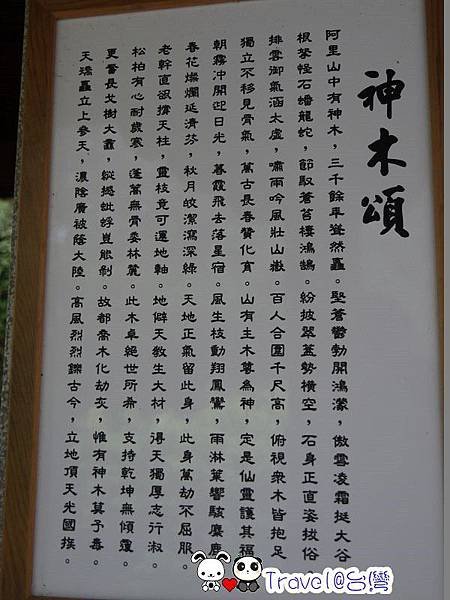 神木頌
阿里山中有神木，三千餘年聳然矗。堅蒼鬱勃開鴻濛，傲雪凌霜挺大谷
根拏怪石蟠龍蛇，節馭蒼苔棲鴻鵠。紛披翠蓋勢橫空，石身正直姿拔俗
排雲御氣涵太虛，嘯雨吟風壯山嶽。百人合圍千尺高，俯視眾木皆抱足
獨立不移見骨氣，萬古長春贊化育。山有主木尊為神，定是仙靈護其福
朝霧冲開迎日光，暮霞飛去落星宿。風生核動翔鳳鸞，雨淋葉響駭麋鹿
春花燦爛延清芬，秋月皎潔瀉深綠。天地正氣留此身，此身萬劫不屈服。
老幹直欲撐天柱，靈核竟可運地軸。地僻天教生大材，得天獨厚志行淑。
松柏有心耐歲寒，蓬蒿無骨委林麓。此木卓絕世所希，支持乾坤無傾覆。
更奮長戈樹大纛，縱橫蚍蜉豈能剝。故都喬木化劫灰，惟有神木莫予毒。
天孺矗立上參天，濃陰廣被蔭大陸。高風烈烈鑠古今，立地頂天光國族。
Travel@台灣